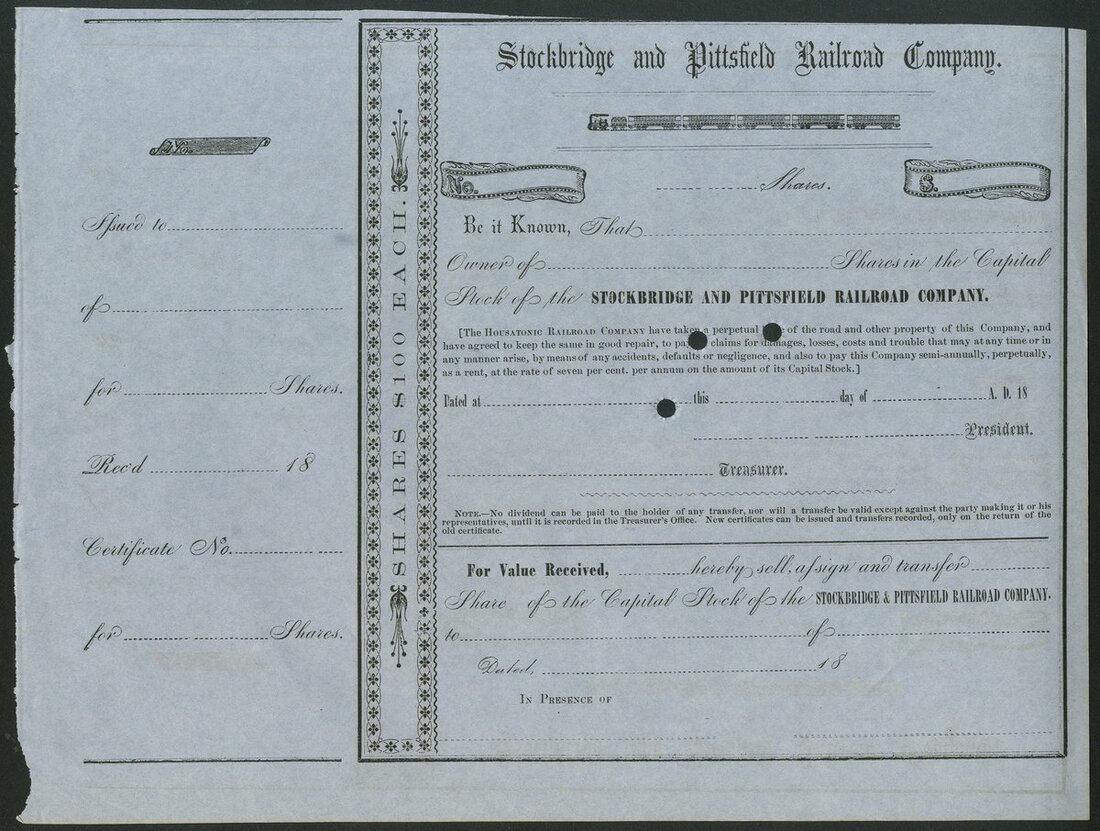 No.
Issued to
of
for Shares.
Rec'd 18
Certificate No.
for Shares.
SHARES $100 EACH.
Stockbridge and Pittsfield Railroad Company.
No. Shares. $.
Be it Known, That
Owner of Shares in the Capital
Stock of the STOCKBRIDGE AND PITTSFIELD RAILROAD COMPANY.
[The Housatonic Railroad Company have taken a perpetual of the road and other property of this Company, and
have agreed to keep the same in good repair, to claims for damages, losses, costs and trouble that may at any time or in
any manner arise, by means of any accidents, defaults or negligence, and also to pay this Company semi-annually, perpetually,
as a rent, at the rate of seven per cent. per annum on the amount of its Capital Stock.]
Dated at this day of A. D. 18
President.
Treasurer.
NOTE.—No dividend can be paid to the holder of any transfer, nor will a transfer be valid except against the party making it or his
representatives, until it is recorded in the Treasurer's Office. New certificates can be issued and transfers recorded, only on the return of the
old certificate.
For Value Received, hereby sell, assign and transfer
Share of the Capital Stock of the STOCKBRIDGE & PITTSFIELD RAILROAD COMPANY.
to of
Dated, 18
In Presence of